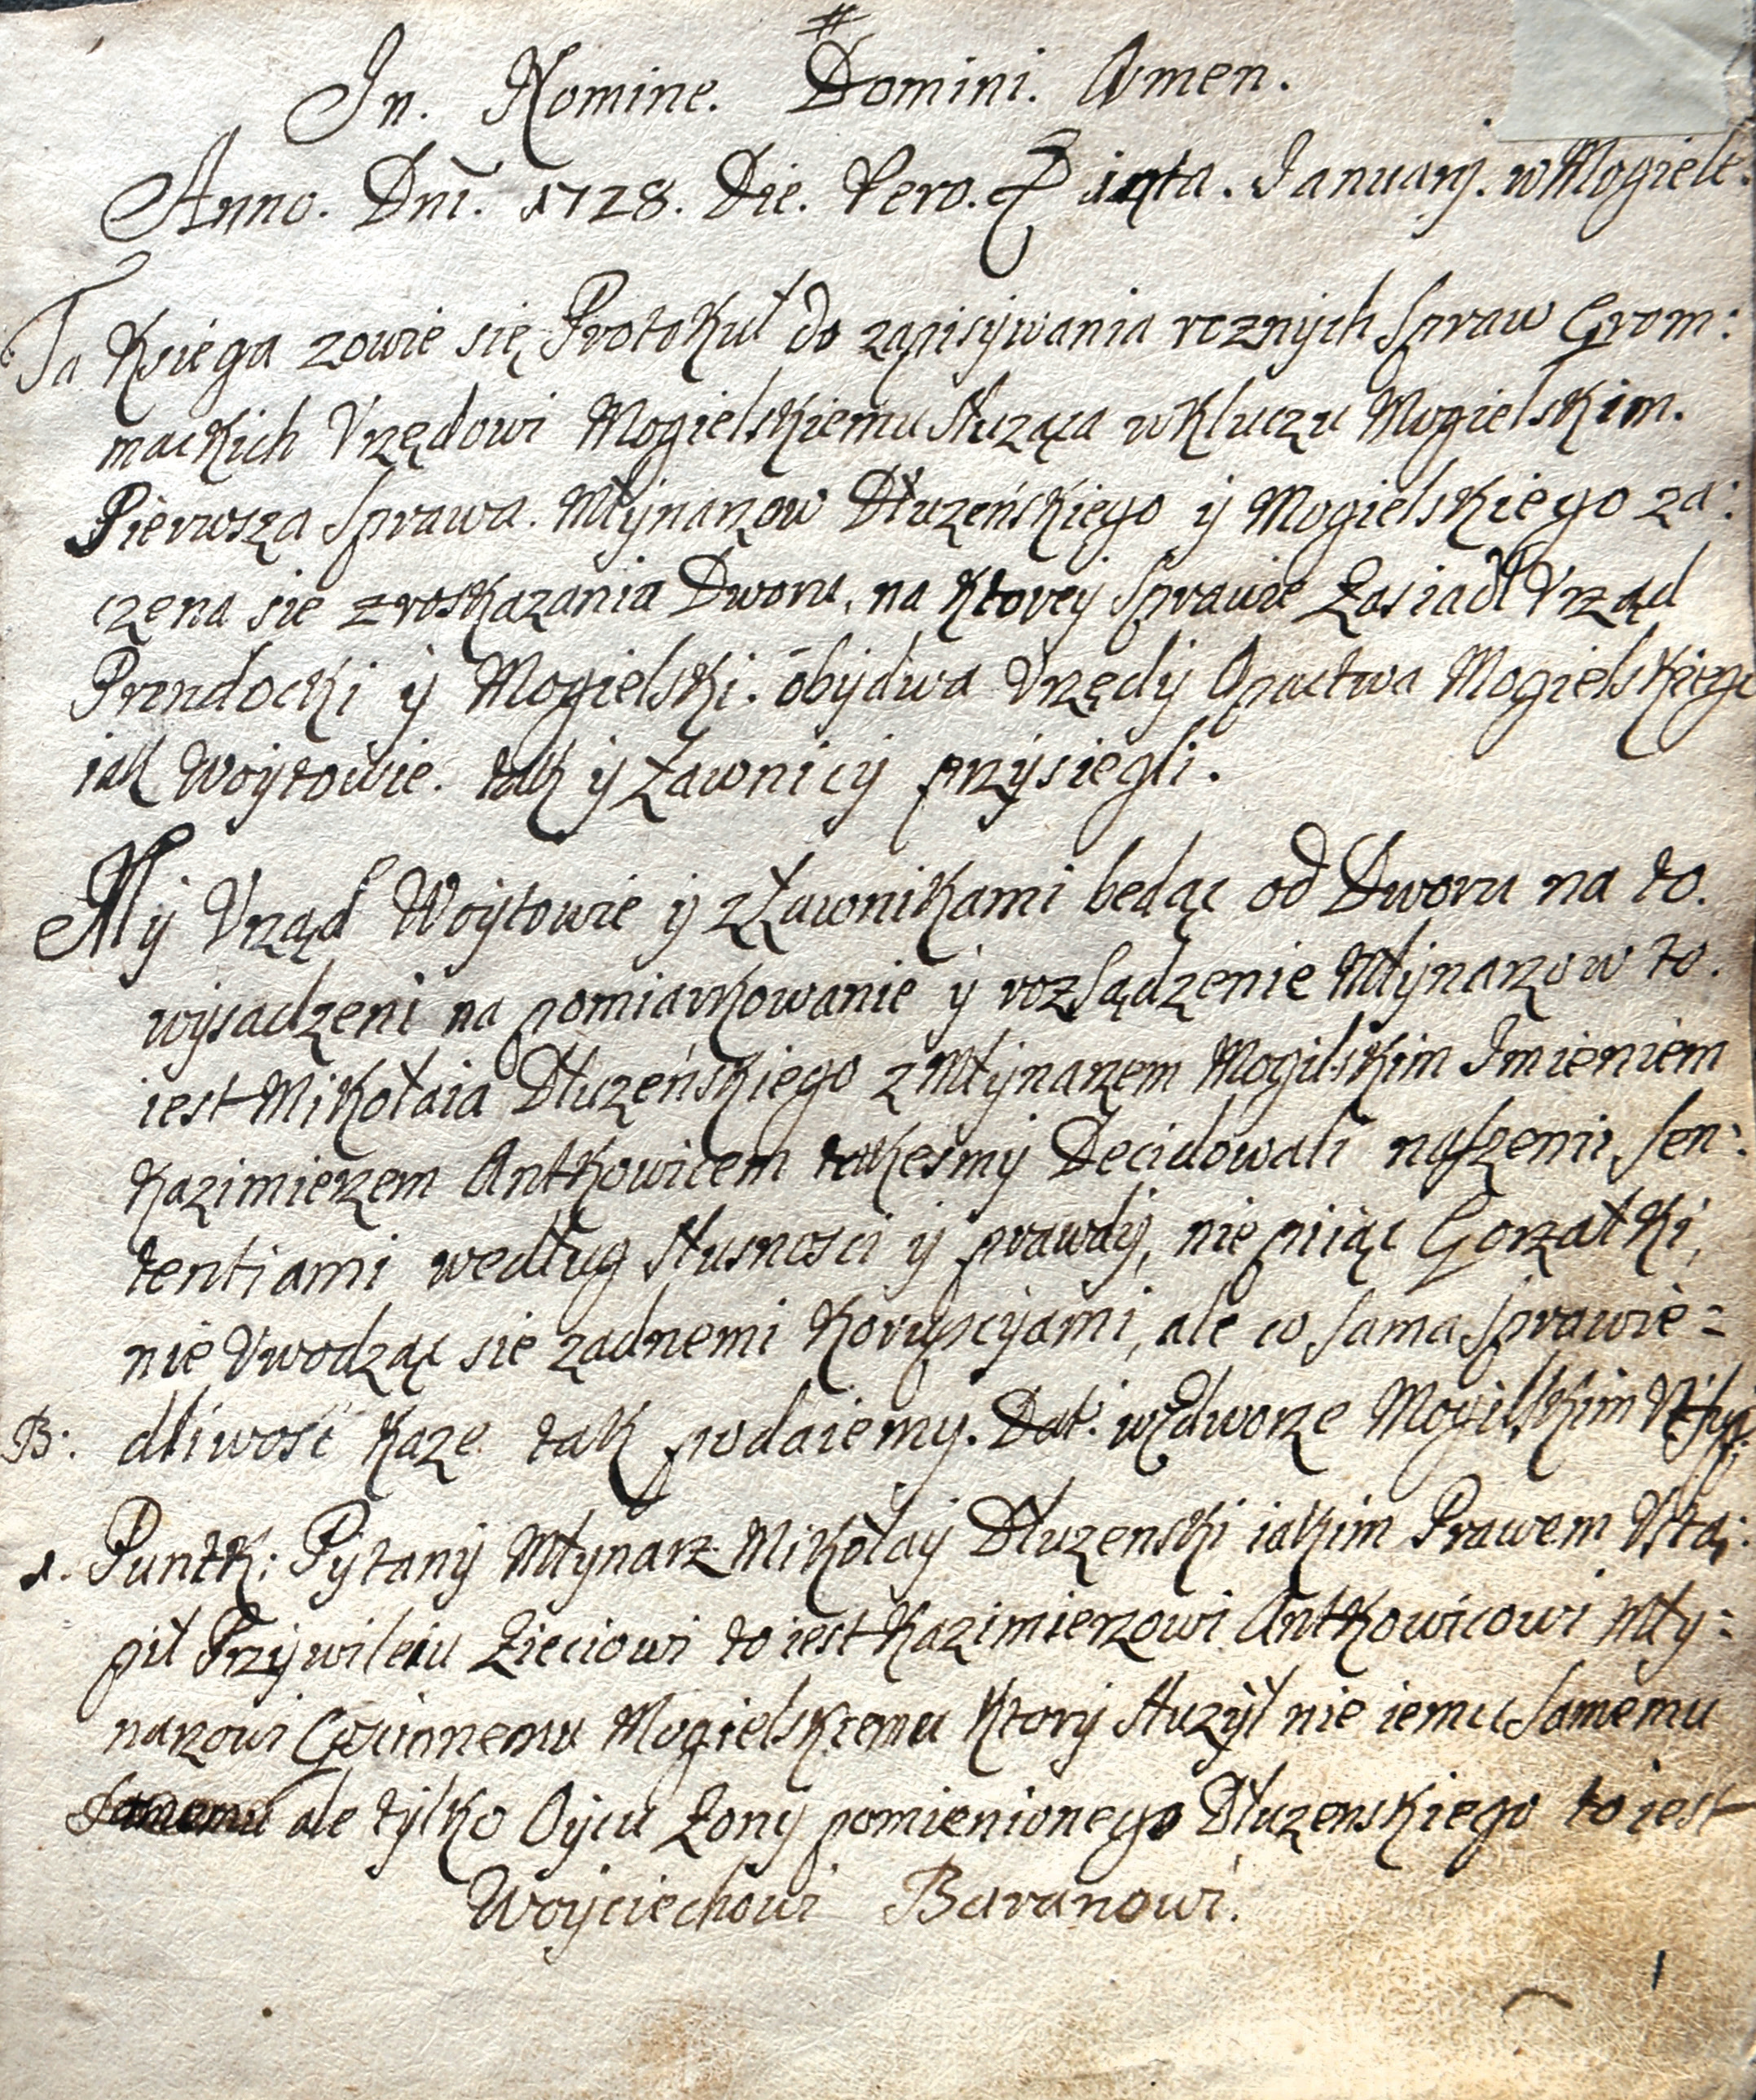 In. Nomine. Domini. Amen.
Anno. Dni. 1728. Die. Vero. Januarij. w Mogiele.
Ta Księga zowie się Protokuł do zapisywania roznych Spraw Grom:
mackich Vrzędowi Mogielskiemu Służąca w Kluczu Mogielskim.
Pierwsza Sprawa. Młynarzow Dłużeńskiego y Mogielskiego za:
częna sie z roskazania Dworu, na Ktorey Sprawie Zasiadł Vrząd
Prandocki y Mogielski. obydwa Vrzędy Opactwa Mogielskiego
iak Woytowie. tak y Ławnicy przysiegli.
My Vrząd Woytowie y z Ławnikami bedąc od Dworu na to.
wysadzeni na pomiarkowanie y rozsądzenie Młynarzow to.
iest Mikołaia Dłużeńskiego z Młynarzem Mogilskim Imieniem
Kazimierzem Antkowicem takesmy Decidowali naszemi Sen:
tentiami według słusnosci y prawdy, nie piiąc Gorzałki,
nie Vwodząc sie żadnemi Korupcyami, ale co Sama Sprawie=
B: dliwosć każe tak podaiemy. Dat: we dworze Mogilskim
1. Puntk: Pytany Młynarz Mikołay Dłuzenski iakim Prawem Vstą:
pił Przywileiu Zieciowi to iest Kazimierzowi Antkowicowi Mły=
narzowi Mogielskiemu Ktory służył nie iemu Samemu
Samemu ale tylko Oycu Żony pomienionego Dłuzenskiego to iest
Woyciechowi Baranowi.